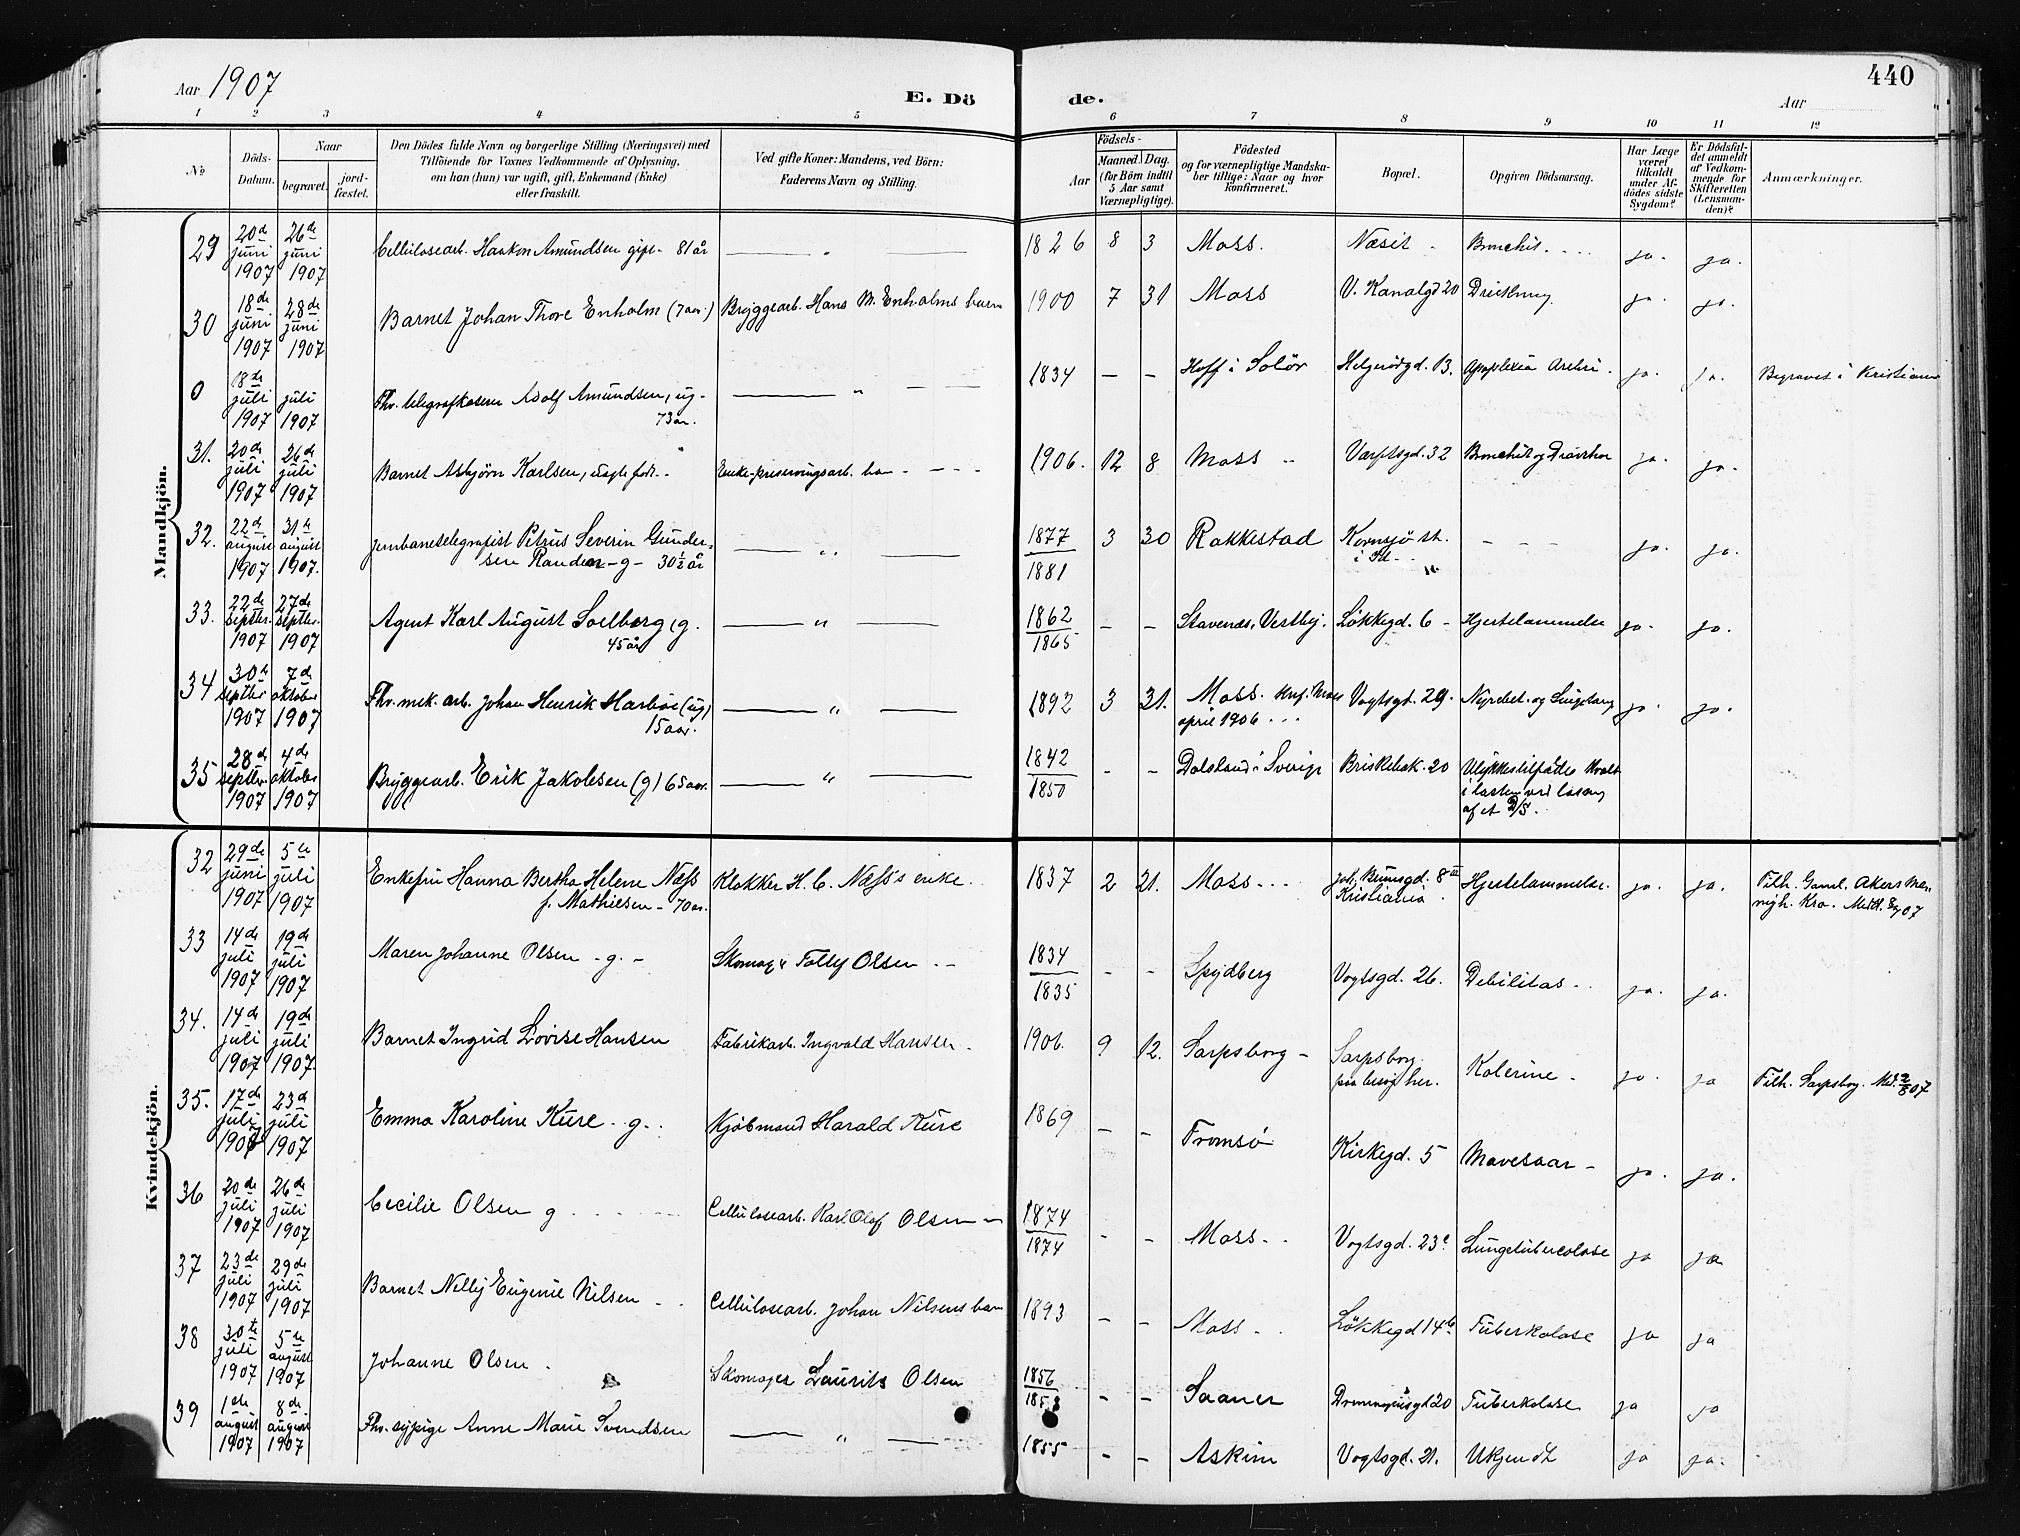 Aar 1907
E. Dö de.
440
Aar
1 2 3 4 5 6 7 8 9 10 11 12
No
Döds-Datum.
Naar begravet. jord-fæstet.
Den Dödes fulde Navn og borgerlige Stilling (Næringsvei) med
Tilföiende for Voxnes Vedkommende af Oplysning,
om han (hun) var ugift, gift, Enkemand (Enke)
eller fraskilt.
Ved gifte Koner: Mandens, ved Börn:
Faderens Navn og Stilling.
Födsels-
Aar Maaned. Dag.
(for Börn indtil
5 Aar samt
Værnepligtige).
Födested
og for værnepligtige Mandska-
ber tillige: Naar og hvor
konfirmeret.
Bopæl.
Opgiven Dödsaarsag.
Har Læge
været
tilkaldt
under Af-
dödes sidste
Sygdom?
Er Dödsfal-
det anmeldt
af Vedkom-
mende for
Skifteretten
(Lensman-
den)?
Anmærkninger.
Mandkjön.
29 20de juni 1907 26de juni 1907 Cellulosearb. Haakon Amundsen gift - 81 år — " — 1826 8 3 Moss. Næsit - Bronchit. ja. ja.
30 18de juni 1907 28de juni 1907 Barnet Johan Thore Enholm (7 aar.) Bryggearb. Hans M. Enholms barn 1900 7 31 Moss V. Kanalgd 20 Drukning. ja. ja.
0 18de juli 1907 juli 1907 Fhv. telegrafkasserer Adolf Amundsen, ug - 73 år. — " — 1834 — — Hoff i Solör Helgerödgd. 13. Apoplexia cerebri. ja. ja. Begravet i Kristiania
31. 20de juli 1907 26de juli 1907 Barnet Asbjörn Karlsen, uægte föd. 1906. 12 8 Moss Varftsgd. 32 Bronchit og ja. ja.
32. 22de august 1907 31te august 1907. Jernbanetelegrafist Petrus Severin Gunder-
sen Randem - g - 30½ år — " — 1877 / 1881 3 30 Rakkestad Kornsjö st. i Id - - - - ja. ja.
33. 22de septbr. 1907 27de septbr. 1907 Agent Karl August Solberg, g. 45 år — " — 1862 / 1865 - - Stavenæs, Vestby. Løkkegd. 6 - Hjertelammelse ja. ja.
34 30te septbr 1907 7de oktober 1907 Fhv. mek. arb. Johan Henrik Harboe (ug) 15 aar. — " — 1892 3 31. Moss. Knf. Moss april 1906 Vogtsgd. 29. ja. ja.
35 28de septbr. 1907 4de oktober 1907 Bryggearb. Erik Jakobsen (g) 65 aar. — " — 1842 / 1850 - - Dalsland i Sverige Briskebak. 20 Ulykkestilfælde Kvalt
i lasten ved losning
af et D/S.
Kvindekjön.
32 29de juni 1907 5te juli 1907 Enkefru Hanna Bertha Helene Næss
f. Mathiesen - 70 år. Klokker H. C. Næss's enke. 1837 2 21. Moss Joh. Brunsgd. 8 III
Kristiania. Hjertelammelse. ja. ja. Tilh. Gaml. Akers Me-
nigh. Kra. Meddt. 07
33 14de juli 1907 19de juli 1907 Maren Johanne Olsen - g. - Skomag. Tolly Olsen 1834 / 1835 - - Spydberg Vogtsgd. 26. Debilitas ja. ja.
34. 14de juli 1907 19de juli 1907. Barnet Ingrid Lovise Hansen Fabrikarb. Ingvald Hansen. 1906. 9 12. Sarpsborg - Sarpsborg.
paa besøg her. Kolerine - ja. ja Tilh. Sarpsbog. Med. 2/8 07
35. 17de juli 1907 23de juli 1907 Emma Karoline Kure - g. Kjöbmand Harald Kure 1869 - - Tromsö Kirkegd. 5 Mavesaar - ja. ja.
36 20de juli 1907 26de juli 1907 Cecilie Olsen g Cellulosearb. Karl Olof Olsen 1874 / 1874 - - Moss Vogtsgd. 23c Lungetuberculose ja ja
37 23de juli 1907 29de juli 1907 Barnet Nelly Eugenie Nilsen Cellulosearb. Johan Nilsens barn 1893 - - Moss Løkkegd 14b Tuberkolose ja ja
38 30te juli 1907 5te august 1907 Johanne Olsen. Skomager Laurits Olsen 1856 / 1858 - - Saaner Dronningensgd 20 Tuberkolose ja ja
39 1ste august 1907 8de august 1907 Fhv. sypige Anne Marie Svendsen — " — 1855 - - Askim Vogtsgd. 21. Ukjendt ja ja.